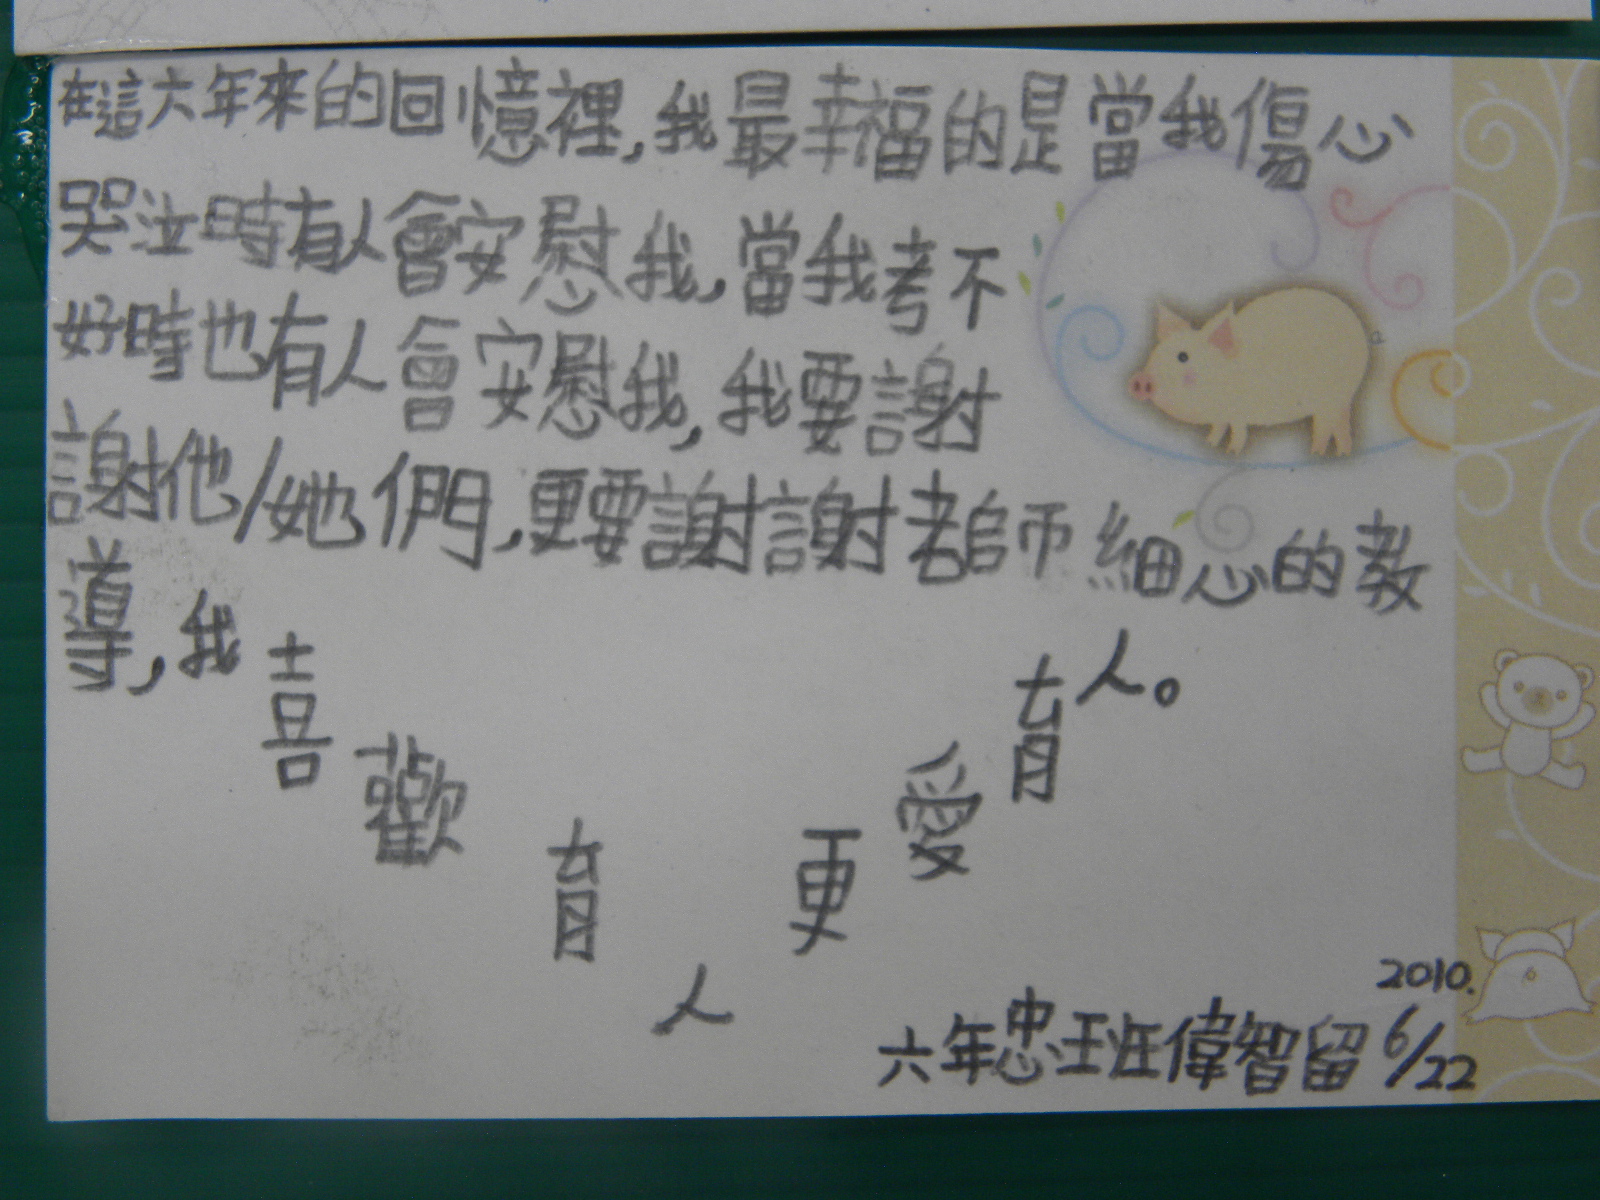 在這六年來的回憶裡,我最幸福的是當我傷心
哭泣時有人會安慰我,當我考不
好時也有人會安慰我,我要謝
謝他/她們,更要謝謝老師細心的教
導,我喜歡育人更愛育人。
2010.
六年忠班偉智留6/22